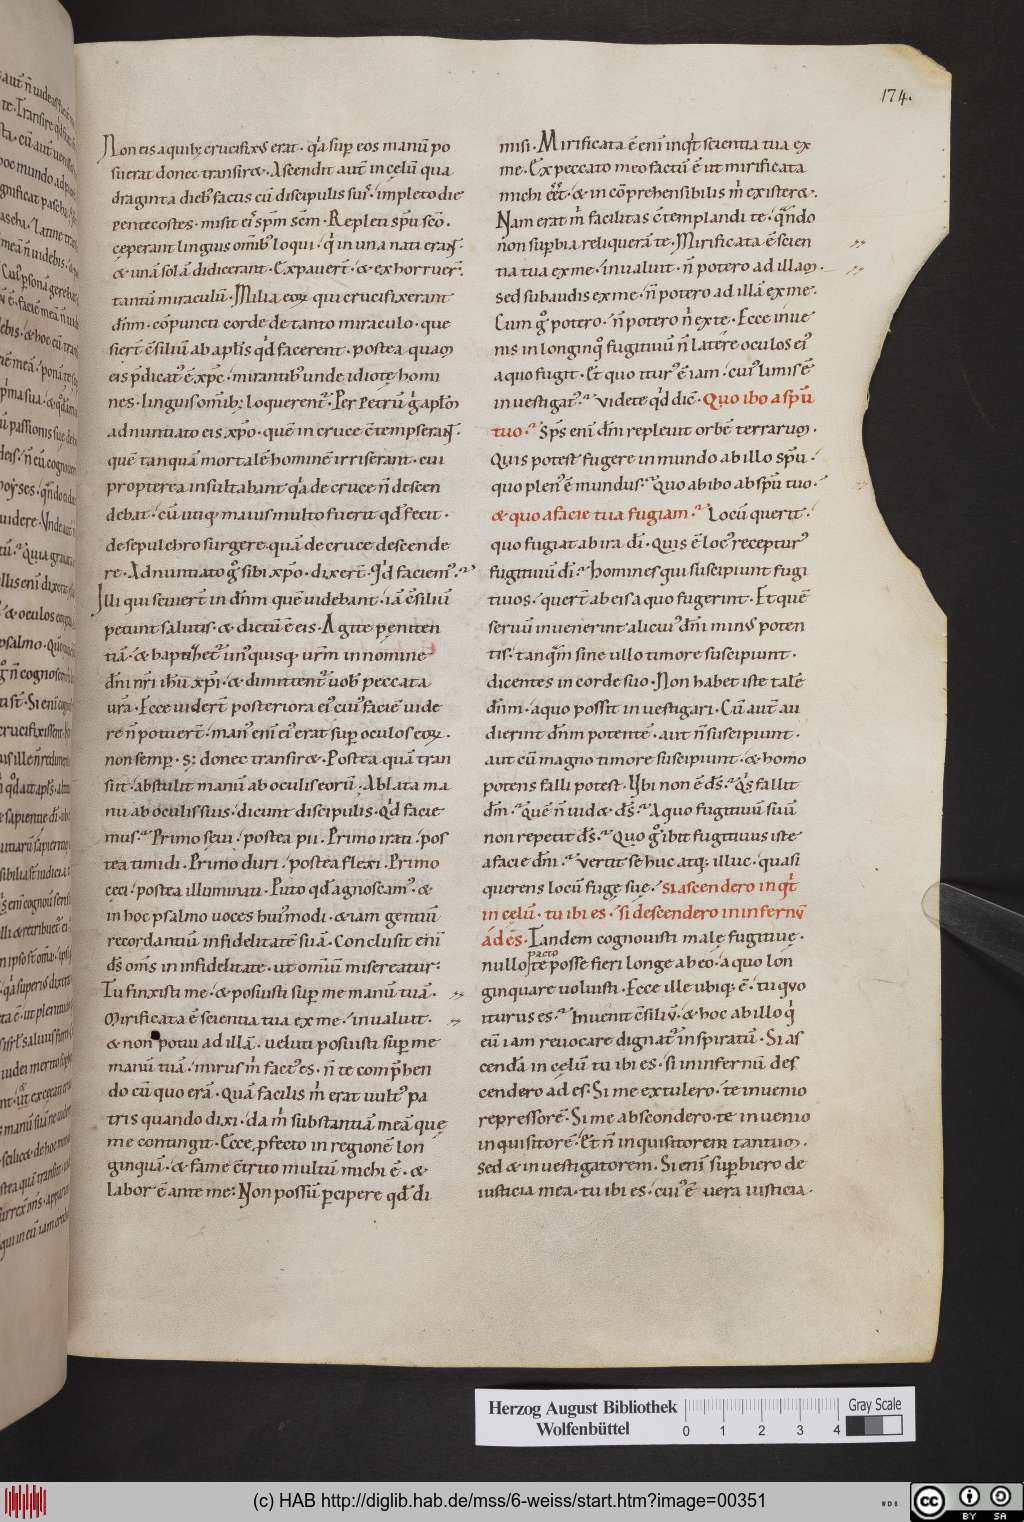 174.
Non eis a quib; crucifixꝰ erat · qͥa suꝑ eos manū po
suerat donec transir&. Ascendit aut̄ in cęlū qua
draginta dieb; factus cū discipulis suiſ · impleto die
pentecostes · misit eiſ sp̄m sc̄m · Repleti sp̄u sc̄o ·
ceperant linguis om̄ib; loqui · qͥ in una nati erant ·
& unā solā didicerant · Expauert̄ · & exhorruer̄t ·
tantū miraculū · Milia eoꝝ qui crucifixerant
dn̄m · cōpuncti corde de tanto miraculo · que
sier̄t c̄siliū ab apl̄is qd̄ facerent · postea quam
eis p̄dicatꝰ ē xp̄c · mirantibꝰ unde idiotę homi
nes · linguis om̄ib; loquerent᷑ · Per Petrū g͛ apl̄m
adnuntiato eis xp̄o · quē in cruce c̄tempserant ·
quē tanquā mortalē hominē irriserant · cui
propterea insultabant qͥa de cruce n̄ descen
debat · cū utiqꝫ maius multo fuerit qd̄ fecit ·
de sepulchro surgere quā de cruce descende
re · Adnuntiato g͛ sibi xp̄o · dixer̄t · Qͥd faciemꝰ ·
Illi qui seuier̄t in dn̄m quē uidebant · iā c̄siliū
petunt salutis · & dictū ē eis · Agite peniten
tiā · & baptizet᷑ unꝰquisqꝫ ur̄m in nomine
dn̄i nr̄i ih̄u xp̄i · & dimittent᷑ uob̄ peccata
ur̄a · Ecce uider̄t posteriora eiꝰ cuiꝰ faciē uide
re n̄ potuer̄t · manꝰ eni eiꝰ erat suꝑ oculos eoꝝ ·
non semꝑ · s; donec transir& · Postea quā tran
siit · abstulit manū ab oculis eorū · Ablata ma
nu ab oculis suis · dicunt discipulis · Qͥd facie
mus · Primo sęui · postea pii · Primo irati · pos
tea timidi · Primo duri · postea flexi · Primo
cęci · postea illuminati · Puto qd̄ agnoscamꝰ · &
in hoc psalmo uoces huiꝰmodi · & iam gentiū
recordantiū infidelitatē suā · Conclusit eni
ds̄ om̄s in infidelitate · ut omniū misereatur ·
Tu finxisti me · & posuisti suꝑ me manū tuā ·
Mirificata ē scientia tua ex me · inualuit ·
& non potui ad illā · ueluti posuisti suꝑ me
manū tuā · mirus m̄ factꝰ es · n̄ te comp̄hen
do cū quo erā · Quā facilis m̄ erat uultꝰ pa
tris quando dixi · da m̄ substantiā meā quę
me contingit · Ecce ꝓfecto in regionē lon
ginquā · & fame c̄tritio multū michi ē · &
labor ē ante me · Non possū ꝑcipere qd̄ di
misi · Mirificata ē eni inqͥt scientia tua ex
me · Ex peccato meo factū ē ut mirificata
michi eēt · & in cōprehensibilis m̄ exister& ·
Nam erat m̄ facilitas c̄templandi te · qͣndo
non suꝑbia reliquerā te · Mirificata ē scien
tia tua ex me · inualuit · n̄ potero ad illam ·
sed subaudis ex me · n̄ potero ad illā ex me ·
Cum g͛ potero · n̄ potero nͥ ex te · Ecce inue
nis in longinqͦ fugitiuū n̄ latēre oculos eiꝰ
a quo fugit · Et quo iturꝰ ē iam · cuiꝰ limis ē
inuestigatꝰ · uidete qd̄ dic̄ · Quo ibo a sp̄u
tuo · Sp̄s eni dn̄i repleuit orbē terrarum ·
Quis potest fugere in mundo ab illo sp̄u ·
quo plenꝰ ē mundus · Quo abibo ab sp̄u tuo ·
& quo a facie tua fugiam · Locū querit ·
quo fugiat ab ira di̅ · Quis ē locꝰ recepturꝰ
fugitiuū di̅ · Homines qui suscipiunt fugi
tiuos · quer̄t ab eis a quo fugerint · Et quē
seruū inuenerint alicuiꝰ dn̄i minꝰ poten
tis · tanqͣm sine ullo timore suscipiunt ·
dicentes in corde suo · Non habet iste talē
dn̄m · a quo possit inuestigari · Cū aut̄ au
dierint dn̄m potentē · aut n̄ suscipiunt ·
aut cū magno timore suscipiunt · & homo
potens falli potest · Ubi non ē ds̄ · Qͥs fallit
dm̄ · Quē n̄ uid& ds̄ · A quo fugitiuū suū
non repetit ds̄ · Quo g͛ ibit fugitiuus iste
a facie dn̄i · Vertit se huc atqꝫ illuc · quasi
querens locū fugę suę · Si ascendero inqͥt
in cęlū · tu ibi es · si descendero in infernū
ádēs · Tandem cognouisti male fugitiue ·
pacto
nullo te posse fieri longe ab eo · a quo lon
ginquare uoluisti · Ecce ille ubiqꝫ ē · tu quo
iturus es · Inuenit c̄siliū · & hoc ab illo qͥ
eū iam reuocare dignat᷑ inspiratū · Si as
cendā in cęlū tu ibi es · si in infernū des
cendero ad es · Si me extulero · te inuenio
repressorē · Si me abscondero · te inuenio
inquisitorē · Et n̄ inquisitorem tantum ·
sed & inuestigatorem · Si eni suꝑbiero de
iusticia mea · tu ibi es · cuiꝰ ē uera iusticia ·
Herzog August Bibliothek
Wolfenbüttel
0 1 2 3 4
Gray Scale
(c) HAB http://diglib.hab.de/mss/6-weiss/start.htm?image=00351
WDB
cc
BY SA